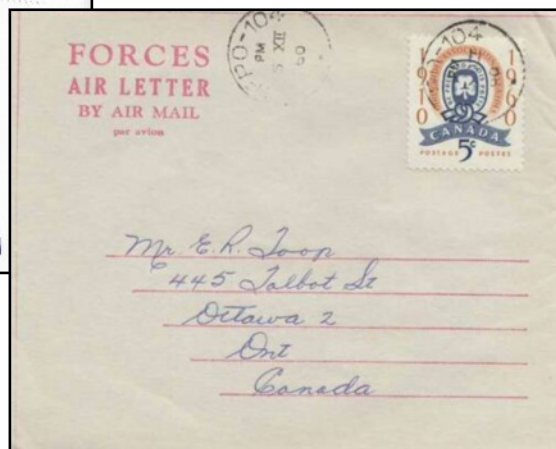 FORCES
AIR LETTER
BY AIR MAIL
par avion
PO-104
PM
XII
60
PO-104
1910
1960
CANADA
POSTAGE 5c POSTES
Mr. E.R. Toop
445 Talbot St
Ottawa 2
Ont
Canada